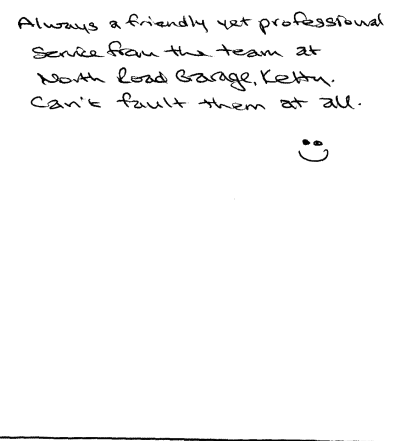 Always a friendly yet professional
service from the team at
North Road Garage, Ketty.
Can't fault them at all.